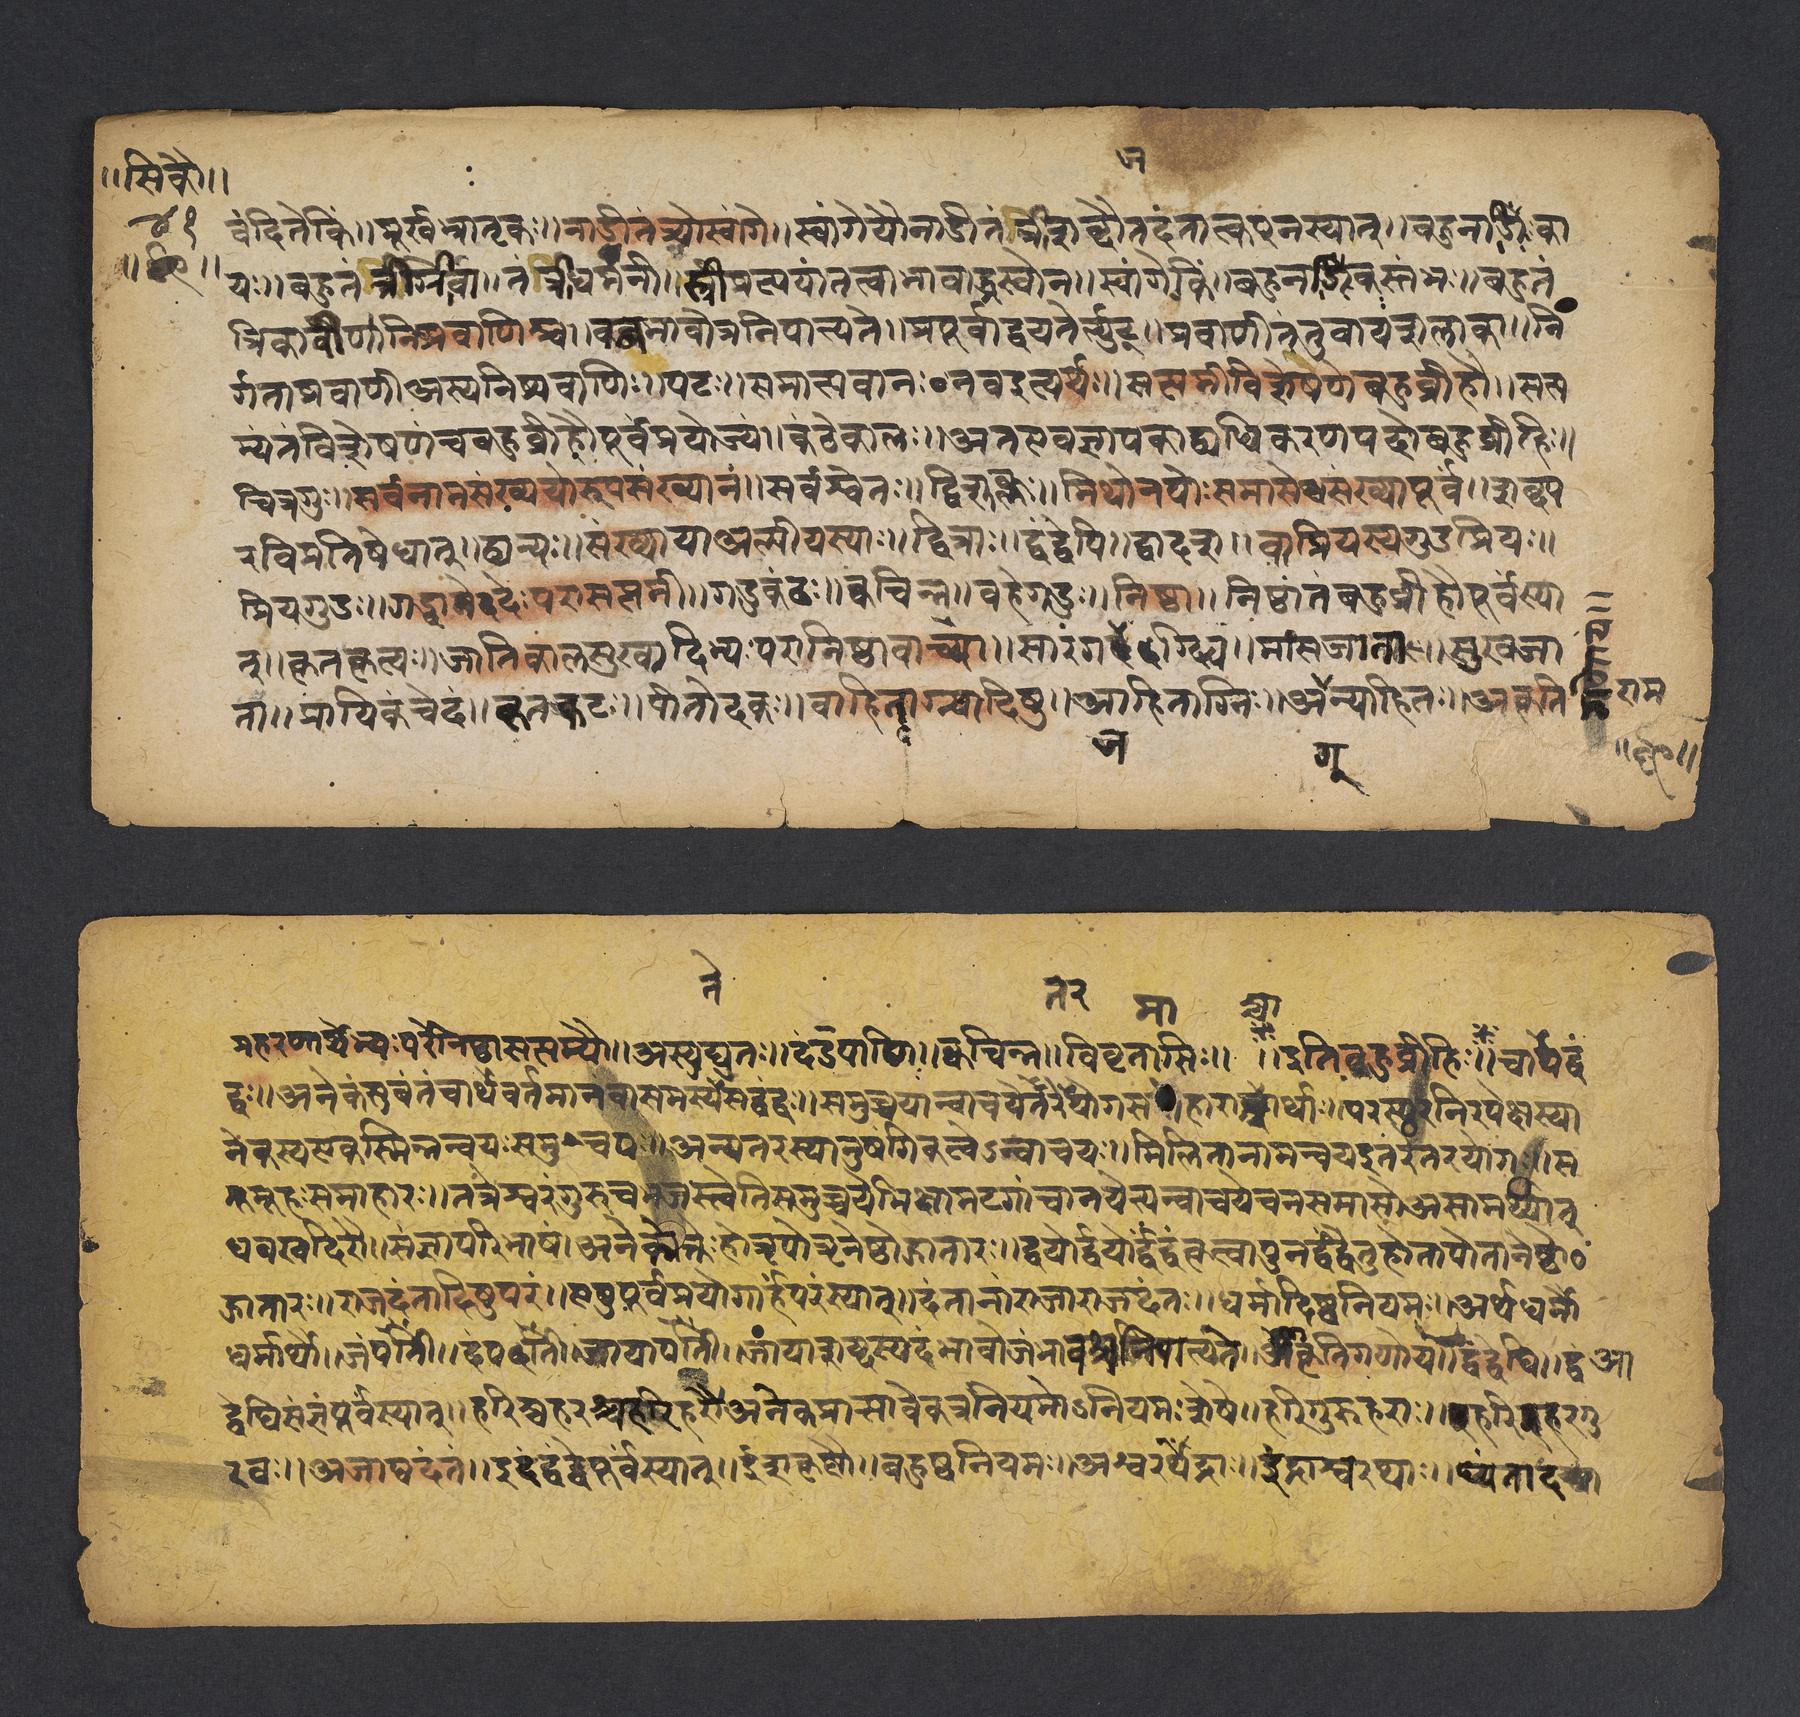 ॥सिकौ॥
वंदितेकिं॥मूर्खभ्रातृकः॥नाडीतंत्र्योःस्वांगे॥स्वांगेयौनाडीतंत्रीशब्दौतदंतात्कपूनस्यात्॥बहुनाडिःका
यः॥बहुतंत्रीर्ग्रीवा॥तंत्रीधमनी॥स्त्रीप्रत्ययांतत्वाभावाद्ध्रस्वोन॥स्वांगेकिं॥बहुनाडीकस्तंभः॥बहुतं
त्रिकावीणानिष्प्रवाणिश्च॥कबभावोत्रनिपात्यते॥प्रपूर्वाद्वयतेर्ल्युट्॥प्रवाणीतंतुवायशलाका॥नि
र्गताप्रवाणीअस्यनिष्प्रवाणिः॥पटः॥समाप्तवानःनवइत्यर्थः॥सप्तमीविशेषणेबहुव्रीहौ॥सप्त
म्यंतंविशेषणंचबहुव्रीहौपूर्वंप्रयोज्यं॥कंठेकालः॥अतएवज्ञापकाद्व्यधिकरणपदोबहुव्रीहिः॥
चित्रगुः॥सर्वनामसंख्ययोरुपसंख्यानं॥सर्वश्वेतः॥द्विशुक्लः॥मिथोनयोःसमासेसंख्यापूर्वं॥शब्दप
रविप्रतिषेधात्॥द्व्यन्यः॥संख्यायाअल्पीयस्याः॥द्वित्राः॥द्वंद्वेपि॥द्वादश॥वाप्रियस्यगुडप्रियः॥
प्रियगुडः॥गड्वादेःपरासप्तमी॥गडुकंठः॥क्वचिन्न॥वहेगडुः॥निष्ठा॥निष्ठांतंबहुव्रीहौपूर्वंस्या
त्॥कृतकृत्यः॥जातिकालसुखादिभ्यःपरानिष्ठावाच्या॥सारंगजग्धी॥मासजाता॥सुखजा
ता॥प्रायिकंचेदं॥कृतकटः॥पीतोदकः॥वाहिताग्न्यादिषु॥आहिताग्निः॥अग्न्याहितः॥आकृति
राम
प्रहरणार्थेभ्यःपरेनिष्ठासप्तम्यौ॥अस्युद्यतः॥दंडपाणिः॥क्वचिन्न॥विवृतासिः॥॥इतिबहुव्रीहिः॥चार्थेद्वं
द्वः॥अनेकंसुबंतंचार्थेवर्तमानंवासमस्यतेसद्वंद्वः॥समुच्चयान्वाचयेतरेतरयोगसमाहाराश्चार्थाः॥परस्परनिरपेक्षस्या
नेकस्यएकस्मिन्नन्वयःसमुच्चयः॥अन्यतरस्यानुषंगिकत्वेऽन्वाचयः॥मिलितानामन्वयइतरेतरयोगः॥स
मूहःसमाहारः॥तत्रेश्वरंगुरुंचभजस्वेतिसमुच्चयेभिक्षामटगांचानयेत्यन्वाचयेचनसमासोअसामर्थ्यात्
धवखदिरौ॥संज्ञापरिभाषं॥अनेकोक्तेःहोतृपोतृनेष्टोद्गातारः॥द्वयोर्द्वयोर्द्वंद्वंकृत्वापुनर्द्वंद्वेतुहोतापोतानेष्टो
द्गातारः॥राजदंतादिषुपरं॥एषुपूर्वप्रयोगार्हंपरंस्यात्॥दंतानांराजाराजदंतः॥धर्मादिष्वनियमः॥अर्थधर्मौ
धर्मार्थौ॥जंपती॥दंपती॥जायापती॥जायाशब्दस्यदंभावोजंभावश्चनिपात्यते॥आकृतिगणोयं॥द्वंद्वेघि॥द्वं
द्वेघिसंज्ञंपूर्वंस्यात्॥हरिश्चहरश्चहरिहरौअनेकप्राप्तावेकत्रनियमोऽनियमःशेषे॥हरिगुरुहराः॥हरिहरगु
रवः॥अजाद्यदंतं॥इदंद्वंद्वेपूर्वंस्यात्॥ईशकृष्णौ॥बहुष्वनियमः॥अश्वरथेंद्राः॥इंद्राश्वरथाः॥घ्यंतादजा